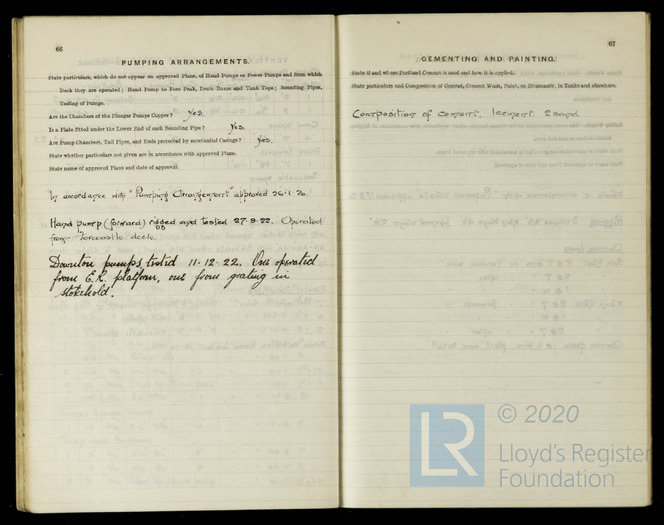 66
PUMPING ARRANGEMENTS.
State particulars, which do not appear on approved Plans, of Hand Pumps or Power Pumps and from which
Deck they are operated; Hand Pump to Fore Peak, Drain Boxes and Tank Tops; Sounding Pipes,
Testing of Pumps.
Are the Chambers of the Plunger Pumps Copper? Yes.
Is a Plate fitted under the Lower End of each Sounding Pipe? Yes.
Are Pump Chambers, Tail Pipes, and Rods protected by substantial Casings? Yes.
State whether particulars not given are in accordance with approved Plans.
State name of approved Plans and date of approval.
In accordance with "Pumping Arrangement" approved 26.1.20.
Hand pump (forward) rigged and tested 27.9.22. Operated
from Forecastle deck.
Downton pumps tested 11.12.22. One operated
from E.R. platform, one from grating in
stokehold.
67
CEMENTING AND PAINTING.
State if and where Portland Cement is used and how it is applied.
State particulars and Composition of Cement, Cement Wash, Paint, or Bitumastic, in Tanks and elsewhere.
Composition of cement. 1 cement. 2 sand.
LR
© 2020
Lloyd's Register
Foundation